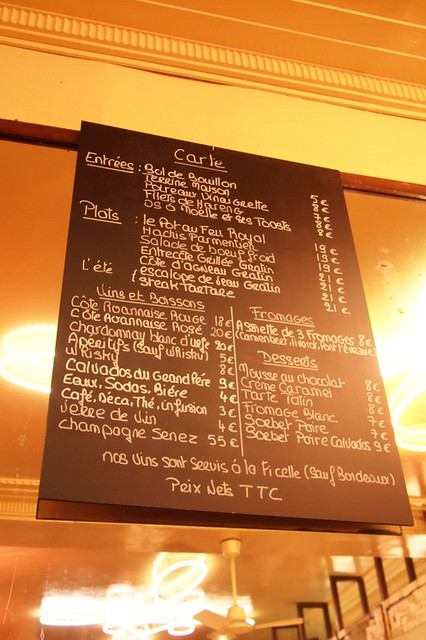 Carte
Entrées : Bol de Bouillon 5 €
Terrine Maison 8 €
Poireaux Vinaigrette 7 €
Filets de Hareng 8 €
Os à Moelle et ses Toasts 8 €
Plats : le Pot au Feu Royal 19 €
Hachis Parmentier 19 €
Salade de boeuf froid 19 €
Entrecôte Grillée Gratin 21 €
Côte d'agneau Gratin 21 €
L'été escalope de veau Gratin 21 €
Steak Tartare 21 €
Vins et Boissons
Côte Roannaise Rouge 18 €
Côte Roannaise Rosé 20 €
chardonnay blanc 20 €
Apéritifs (Sauf Whisky) 5 €
Whisky 8 €
Calvados du Grand Père 9 €
Eaux, Sodas, Bière 4 €
Café, Déca, Thé, infusion 3 €
Verre de Vin 4 €
Champagne Senez 55 €
Fromages
Assiette de 3 Fromages 8 €
(Camembert, Pont l'évêque)
Desserts
Mousse au chocolat 8 €
Crème Caramel 8 €
Tarte Tatin 8 €
Fromage Blanc 7 €
Sorbet Poire 7 €
Sorbet Poire Calvados 9 €
nos Vins sont Servis à la Ficelle (Sauf Bordeaux)
Prix Nets TTC